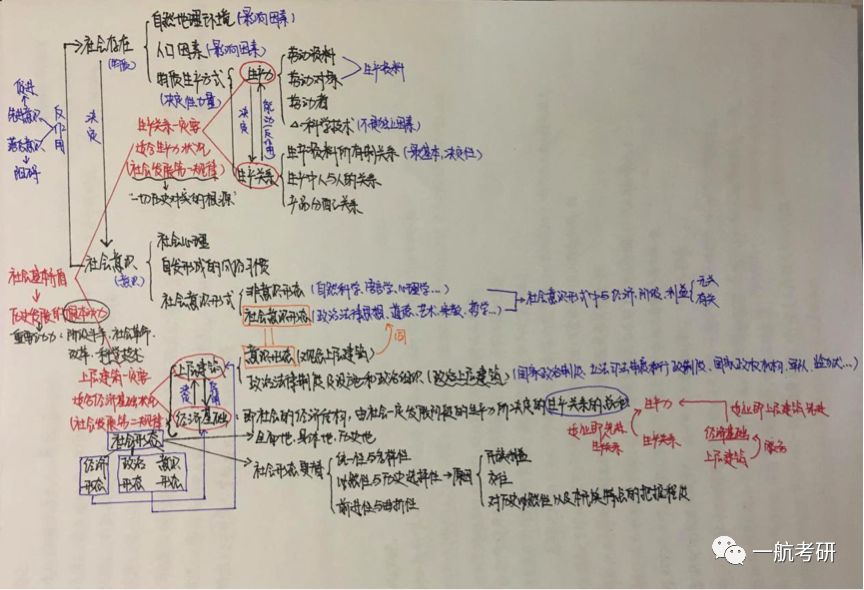 自然地理环境(影响因素)
社会存在
(物质)
人口因素(影响因素)
物质生产方式
(决定性力量)
生产力
劳动资料
劳动对象
生产资料
劳动者
科学技术(不是独立因素)
促进
先进意识
落后意识
阻碍
反作用
决定
决定
生产关系一定要
适合生产力状况
(社会发展第一规律)
"一切历史冲突的根源"
生产关系
生产资料所有制关系(最基本,决定性)
生产中人与人的关系
产品分配关系
社会意识
(意识)
社会心理
自发形成的风俗习惯
社会意识形式
非意识形态(自然科学、语言学、心理学…)
社会意识形态(政治法律思想、道德、艺术、宗教、哲学…)
社会意识形式中与经济、阶级、利益
无关
有关
同
社会基本矛盾
历史发展的根本动力
重要动力:阶级斗争、社会革命、
改革、科学技术
上层建筑一定要
适合经济基础状况
(社会发展第二规律)
上层建筑
意识形态(观念上层建筑)
政治法律制度及设施和政治组织(政治上层建筑)
经济基础
即社会的经济结构,由社会一定发展阶段的生产力所决定的生产关系的总和
社会形态
全面地、具体地、历史地
经济
形态
政治
形态
意识
形态
社会形态更替
统一性与多样性
必然性与历史选择性
原因
前进性与曲折性
民族利益
交往
对历史必然性以及本民族特点的把握程度
生产力
生产关系
生产关系
经济基础
上层建筑
一航考研